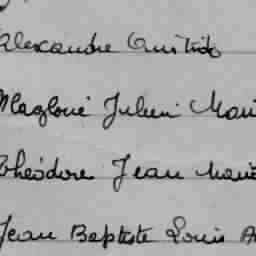 Alexandre Aristide
Magloire Julien Mari
Théodore Jean Marie
Jean Baptiste Louis A